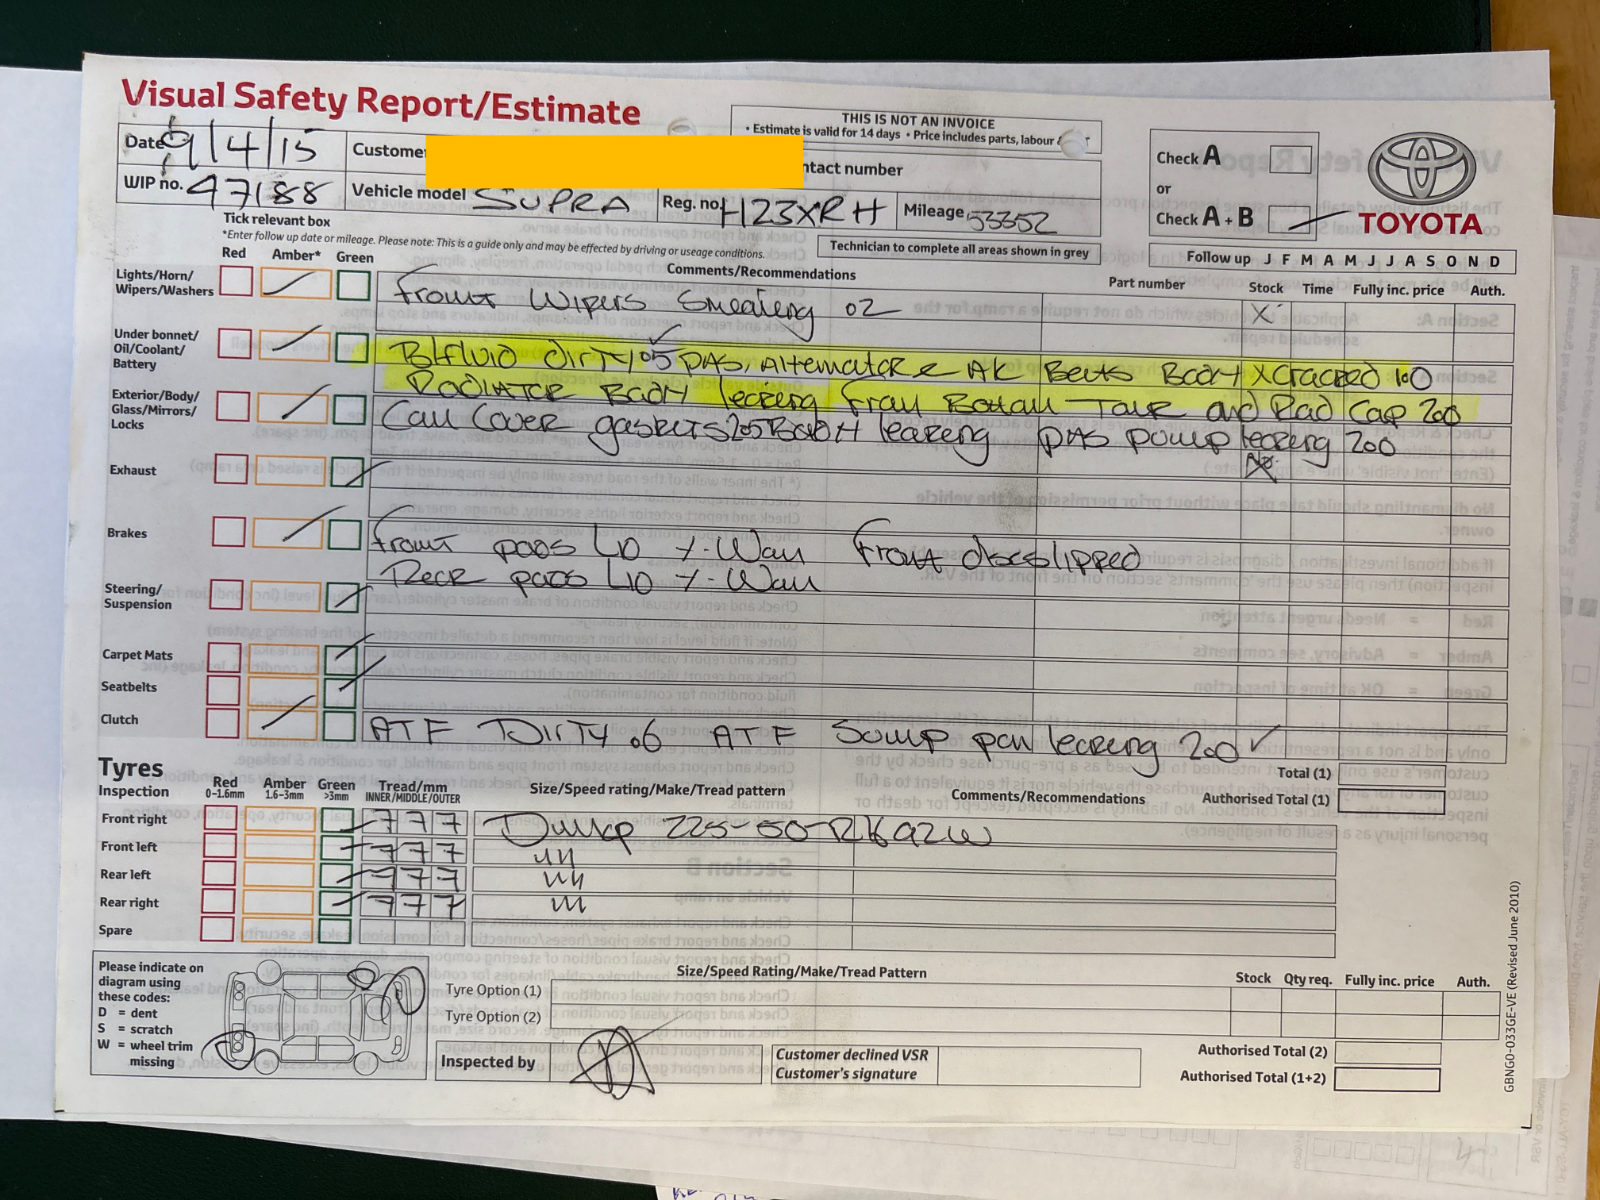 Visual Safety Report/Estimate
THIS IS NOT AN INVOICE
• Estimate is valid for 14 days • Price includes parts, labour &
Date 9/4/15
Custome
ntact number
WIP no. 47188
Vehicle model SUPRA
Reg. no. H123XRH
Mileage 53352
Check A
or
Check A + B
TOYOTA
Tick relevant box
*Enter follow up date or mileage. Please note: This is a guide only and may be effected by driving or useage conditions.
Technician to complete all areas shown in grey
Follow up J F M A M J J A S O N D
Red Amber* Green
Comments/Recommendations
Part number Stock Time Fully inc. price Auth.
Lights/Horn/
Wipers/Washers
Front Wipers Smearing 02 X
Under bonnet/
Oil/Coolant/
Battery
B/fluid dirty .05 PAS, Alternator & A/C Belts Badly X Cracked 1.0
Radiator Badly leaking from Bottom Tank and Rad Cap 2.00
Exterior/Body/
Glass/Mirrors/
Locks
Cam Cover gaskets 2.05 Badly leaking PAS pump leaking 2.00
Exhaust
Brakes
Front pads 40 %. Wan Front discs lipped
Rear pads 40 %. Wan
Steering/
Suspension
Carpet Mats
Seatbelts
Clutch
ATF DIRTY .06 ATF Sump pan leaking 2.00 ✓
Total (1)
Authorised Total (1)
Tyres
Inspection
Red
0-1.6mm
Amber
1.6-3mm
Green
>3mm
Tread/mm
INNER/MIDDLE/OUTER
Size/Speed rating/Make/Tread pattern
Comments/Recommendations
Front right 7 7 7 Dunlop 225-50-R16 92W
Front left 7 7 7 " "
Rear left 7 7 7 " "
Rear right 7 7 7 " "
Spare
Please indicate on
diagram using
these codes:
D = dent
S = scratch
W = wheel trim
missing
Size/Speed Rating/Make/Tread Pattern
Stock Qty req. Fully inc. price Auth.
Tyre Option (1)
Tyre Option (2)
Inspected by
Customer declined VSR
Customer's signature
Authorised Total (2)
Authorised Total (1+2)
GBNG0-033GE-VE (Revised June 2010)